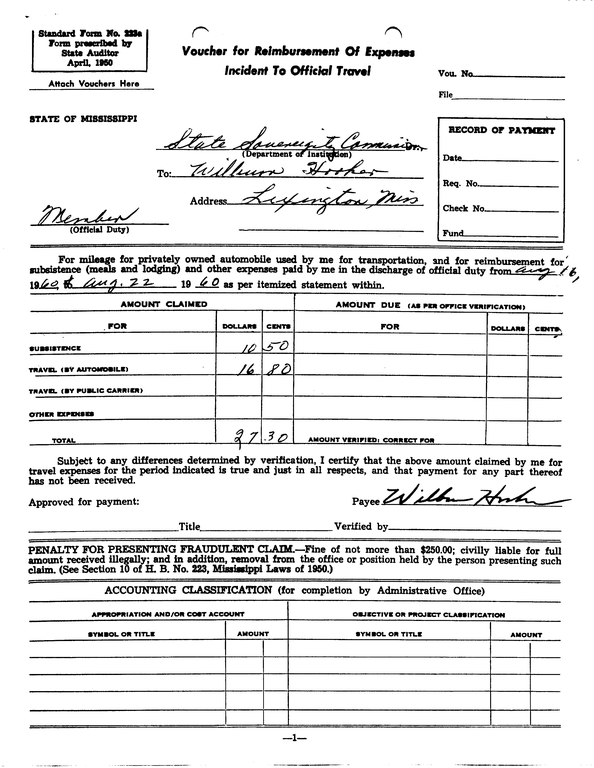 Standard Form No. 223a
Form prescribed by
State Auditor
April, 1950
Attach Vouchers Here
Voucher for Reimbursement Of Expenses
Incident To Official Travel
Vou. No.
File
STATE OF MISSISSIPPI
State Sovereignty Commission
(Department of Institution)
To: Wilburn Hooker
Address Lexington, Miss
Member
(Official Duty)
RECORD OF PAYMENT
Date
Req. No.
Check No.
Fund
For mileage for privately owned automobile used by me for transportation, and for reimbursement for
subsistence (meals and lodging) and other expenses paid by me in the discharge of official duty from Aug 16,
1960, to Aug. 22 1960 as per itemized statement within.
AMOUNT CLAIMED AMOUNT DUE (AS PER OFFICE VERIFICATION)
FOR DOLLARS CENTS FOR DOLLARS CENTS
SUBSISTENCE 10 50
TRAVEL (BY AUTOMOBILE) 16 80
TRAVEL (BY PUBLIC CARRIER)
OTHER EXPENSES
TOTAL 27.30 AMOUNT VERIFIED: CORRECT FOR
Subject to any differences determined by verification, I certify that the above amount claimed by me for
travel expenses for the period indicated is true and just in all respects, and that payment for any part thereof
has not been received.
Approved for payment: Payee Wilburn Hooker
Title Verified by
PENALTY FOR PRESENTING FRAUDULENT CLAIM.—Fine of not more than $250.00; civilly liable for full
amount received illegally; and in addition, removal from the office or position held by the person presenting such
claim. (See Section 10 of H. B. No. 223, Mississippi Laws of 1950.)
ACCOUNTING CLASSIFICATION (for completion by Administrative Office)
APPROPRIATION AND/OR COST ACCOUNT OBJECTIVE OR PROJECT CLASSIFICATION
SYMBOL OR TITLE AMOUNT SYMBOL OR TITLE AMOUNT
—1—